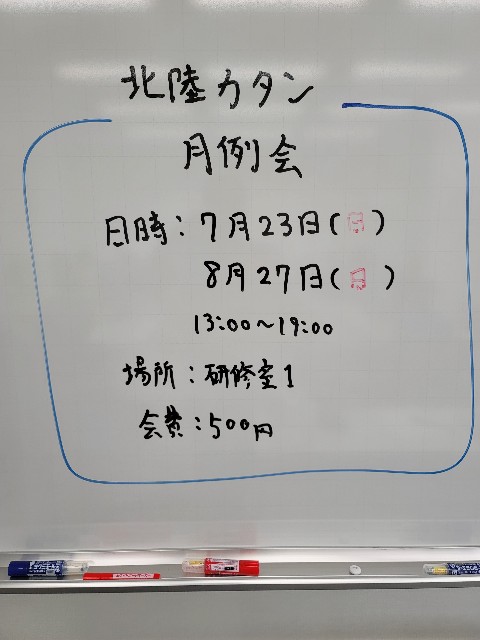 北陸カタン
月例会
日時：7月23日(日)
8月27日(日)
13:00～19:00
場所：研修室1
会費：500円